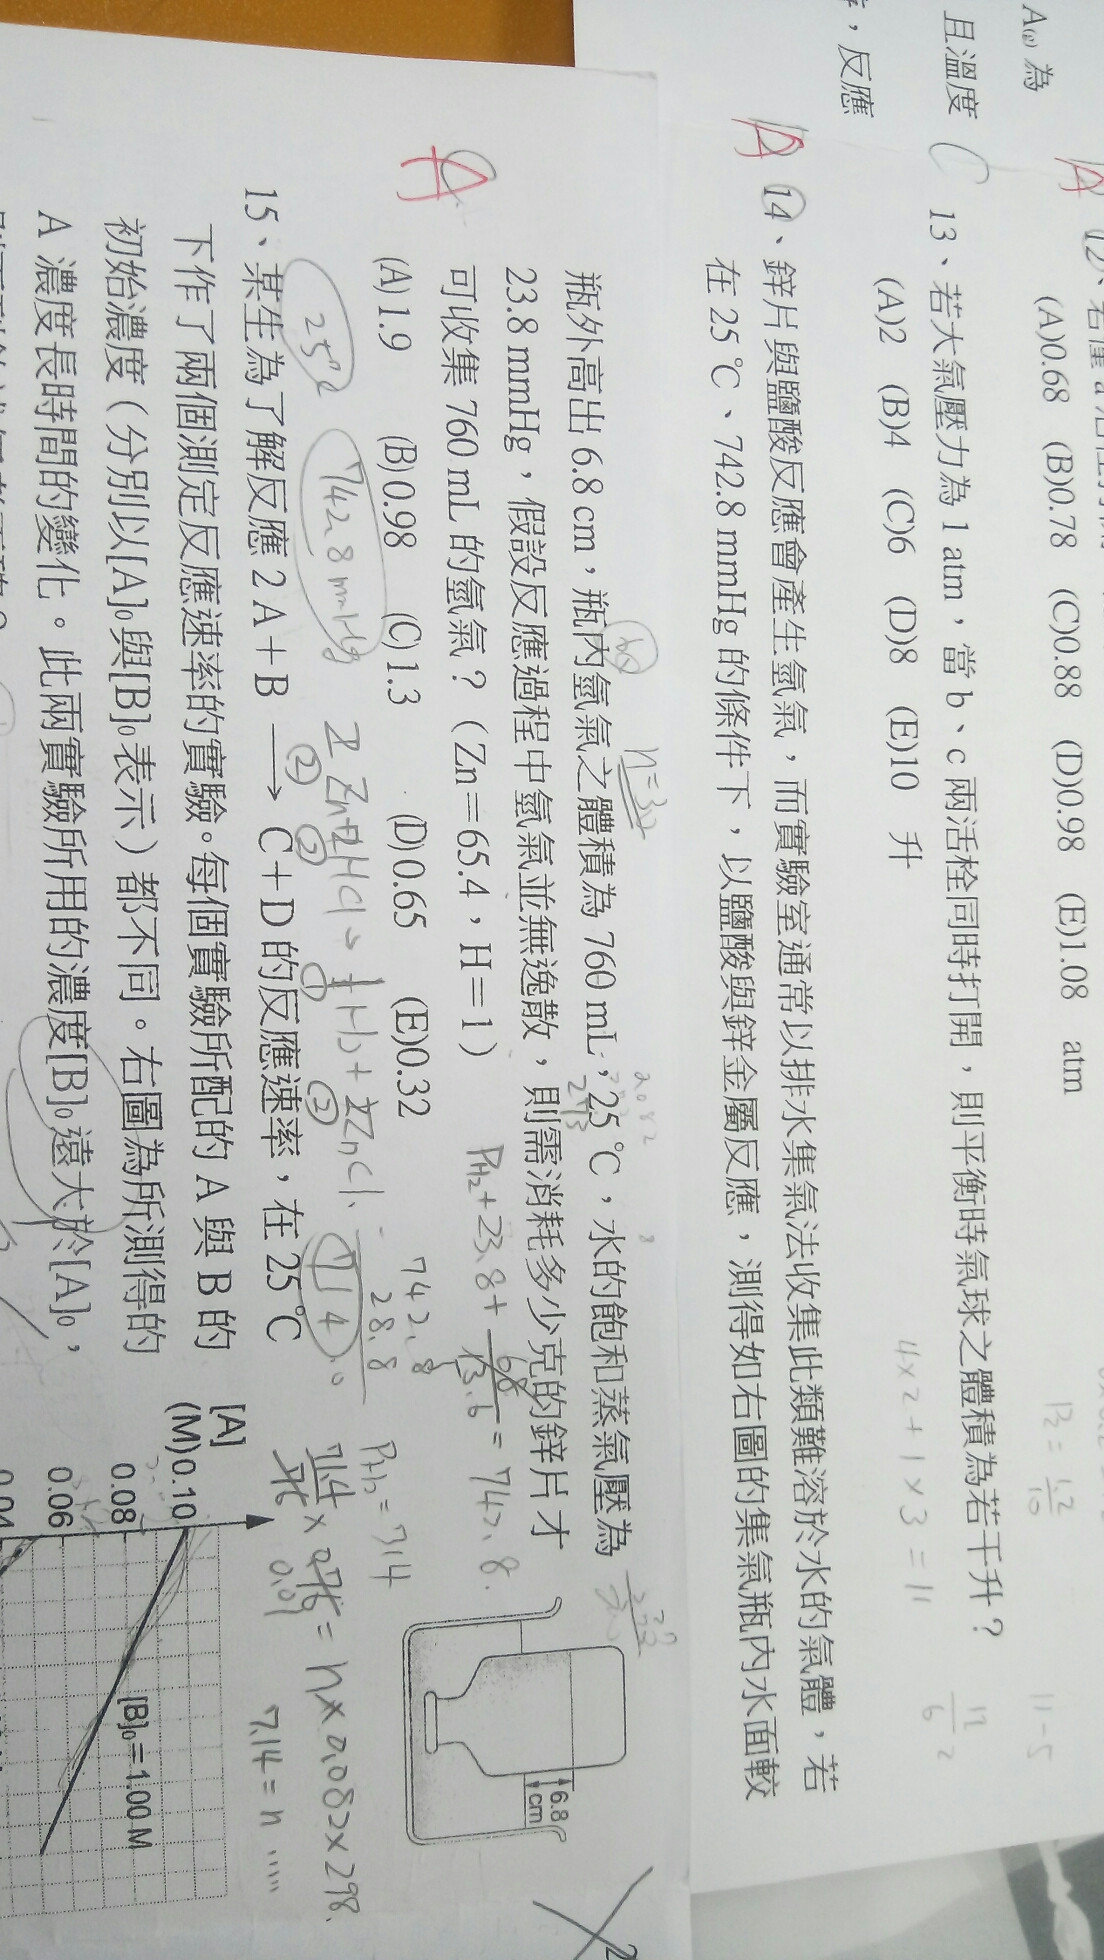 A(g)為
且溫度
,反應
A 12、
(A)0.68 (B)0.78 (C)0.88 (D)0.98 (E)1.08 atm
C 13、若大氣壓力為1 atm,當b、c兩活栓同時打開,則平衡時氣球之體積為若干升?
(A)2 (B)4 (C)6 (D)8 (E)10 升
4×2+1×3=11
11-5
14、鋅片與鹽酸反應會產生氫氣,而實驗室通常以排水集氣法收集此類難溶於水的氣體,若
在25℃、742.8 mmHg的條件下,以鹽酸與鋅金屬反應,測得如右圖的集氣瓶內水面較
瓶外高出6.8 cm,瓶內氫氣之體積為760 mL,25℃,水的飽和蒸氣壓為
23.8 mmHg,假設反應過程中氫氣並無逸散,則需消耗多少克的鋅片才
可收集760 mL的氫氣?(Zn=65.4,H=1)
A
(A)1.9 (B)0.98 (C)1.3 (D)0.65 (E)0.32
6.8
cm
PH₂+23.8+68/13.6=742.8
742.8
28.8
714.0
PH₂=714
25℃
742.8mmHg
714/76×0.76=n×0.082×298
0.01
7.14=n.....
15、某生為了解反應2 A+B ⟶ C+D的反應速率,在25℃
下作了兩個測定反應速率的實驗。每個實驗所配的A與B的
初始濃度(分別以[A]₀與[B]₀表示)都不同。右圖為所測得的
A濃度長時間的變化。此兩實驗所用的濃度[B]₀遠大於[A]₀,
[A]
(M)0.10
0.08
0.06
0.04
[B]₀=1.00 M